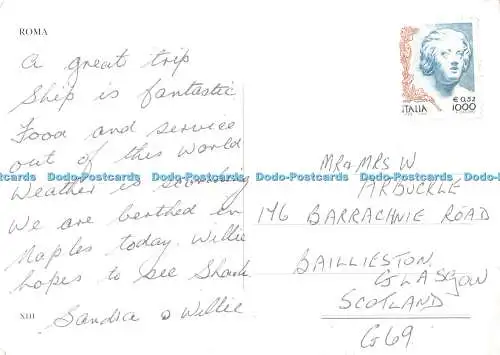 ROMA
A great trip
Ship is fantastic
Food and service
out of this world
Weather is scorching
We are berthed in
Naples today. Willie
hopes to see Shark
Sandra & Willie
XIII
€ 0,52
ITALIA 1000
MR & MRS W
ARBUCKLE
146 BARRACHNIE ROAD
BAILLIESTON
GLASGOW
SCOTLAND
G69
Dodo-Postcards Dodo-Postcards Dodo-Postcards Dodo-Postcards Dodo-Postcards